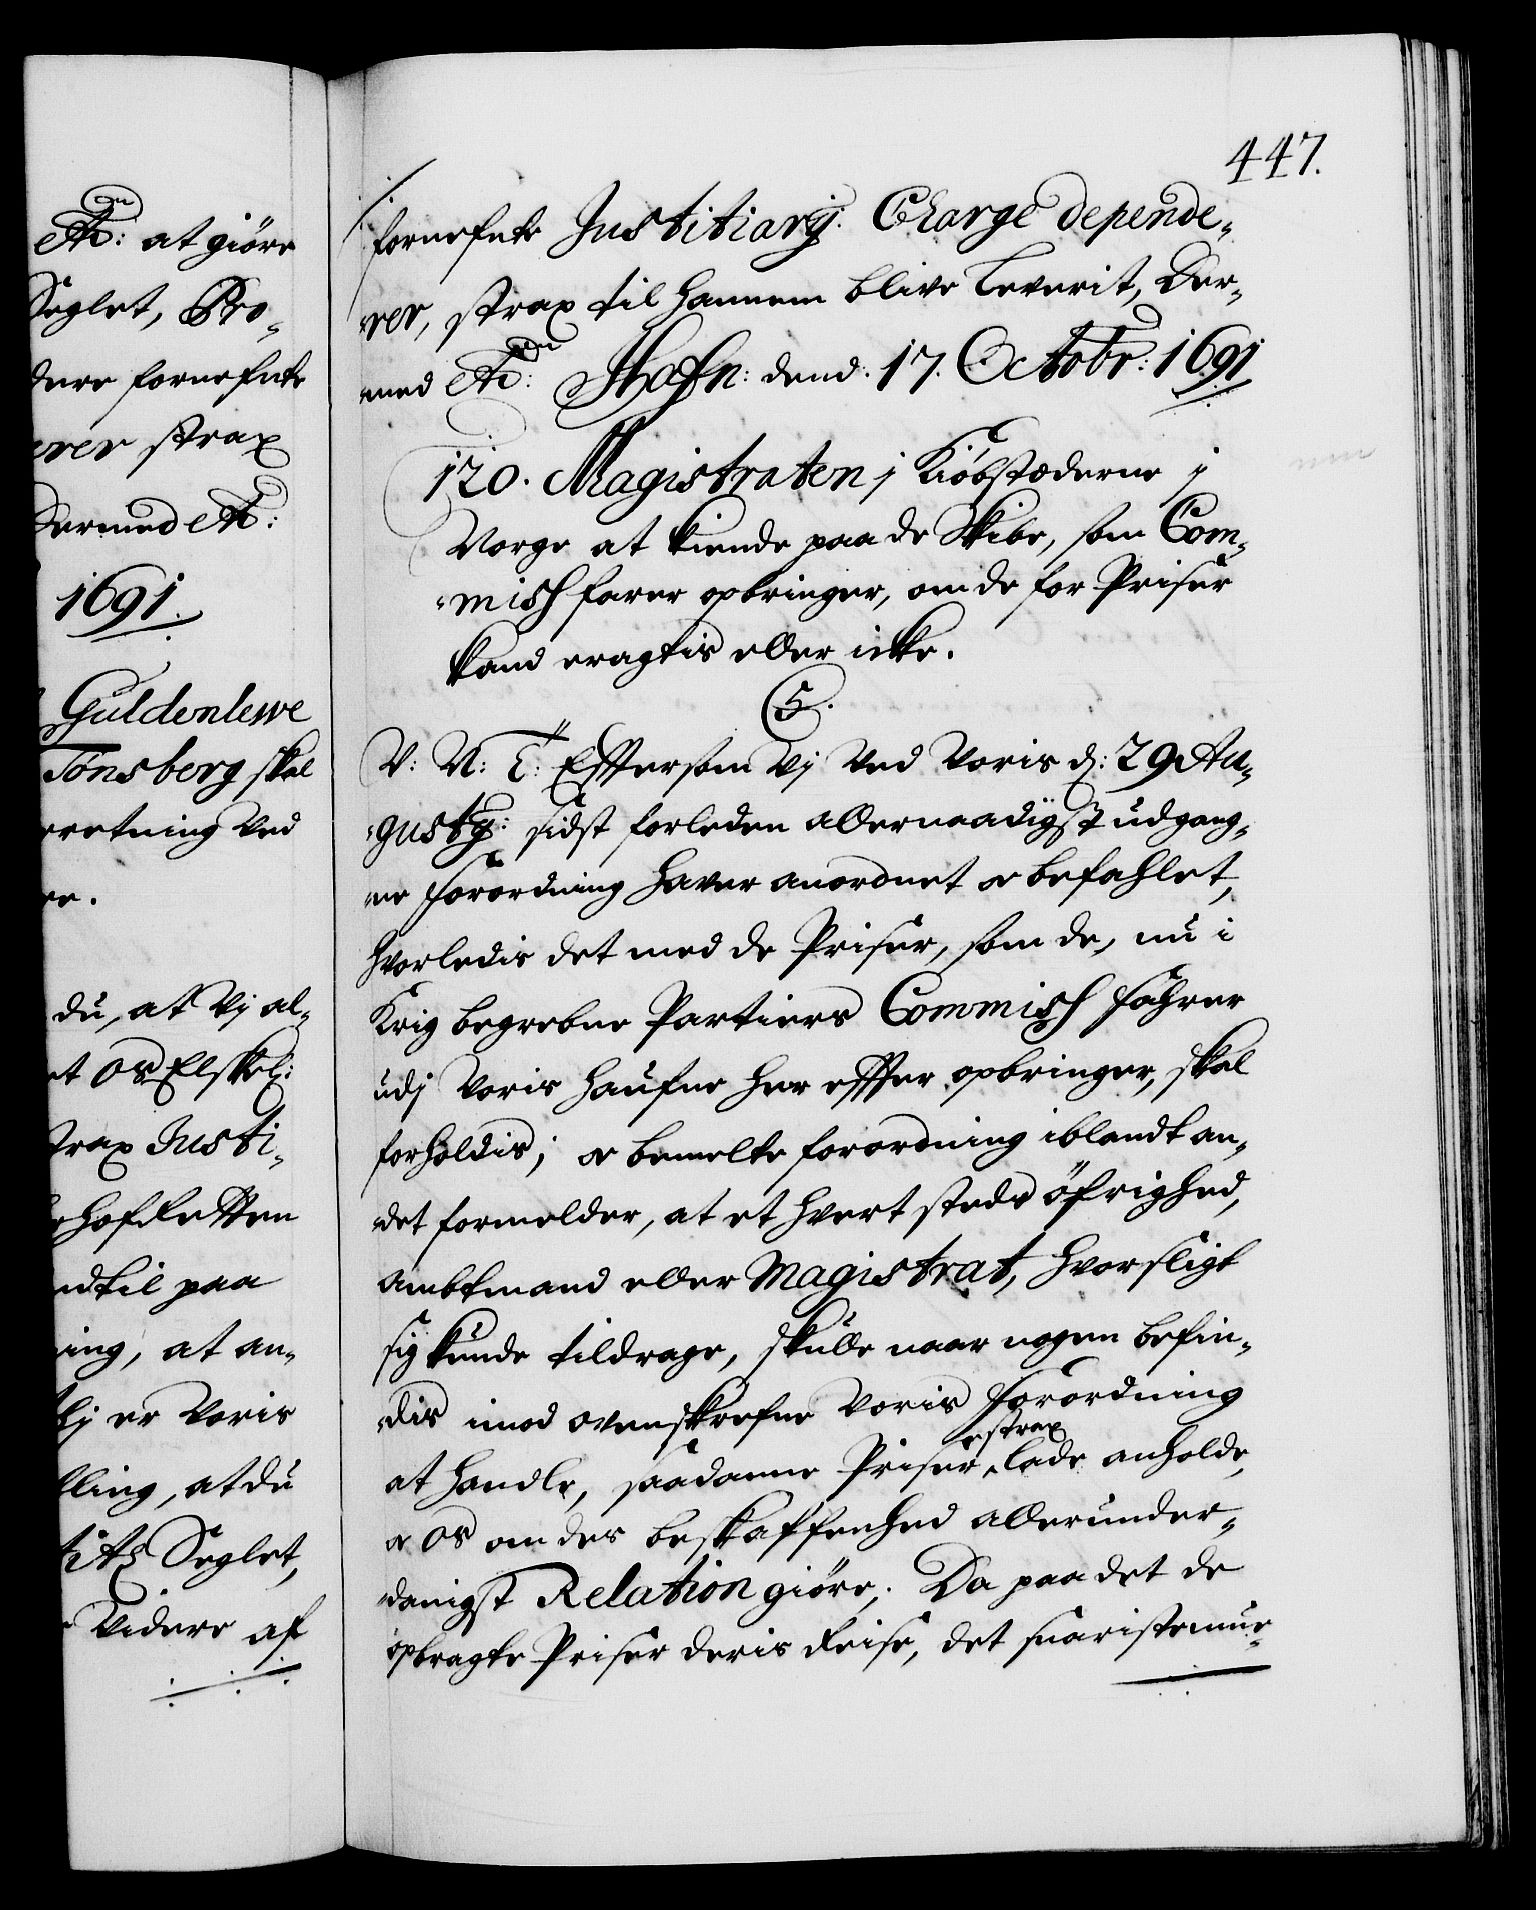 447.
&: at giöre
Seglet, Pro-
dere fornefnte
erer strax
Dermed &:
1691.
Guldenlewe
Tønsberg skal
rretning Ved
re.
du, at Vj al-
et OS Elskel:
trax Justi-
hofRetten
ndtil paa
ning, at an-
lj er Voris
lling, at du
Seglet,
Videre af
fornefnte Justitiarij. Charge depende-
rer, strax til hannem blive leverit, Der-
med &: Hafn: dend. 17. Octobr: 1691
120. Magistraten j Kiöbstæderne j
Norge at kiende paa de Skibe, som Com-
misfarer opbringer, om de for Priser
kand eragtis eller icke.
5.
V: N: T: Effersom Vj Ved Voris d: 29 Au-
gustij: sidst forleden allernaadigst udgang-
ne Forordning haver anordnet oc befahlet,
hvorledis det med de Priser, som de, nu i
Krig begrebne Partiers Commisfahrer
udj Voris haufne her effter opbringer, skal
forholdis; oc bemelte forordning iblandt an-
det formelder, at et hvert steds öfrighed,
ambtmand eller Magistrat, hvor sligt
sig kunde tildrage, skulle naar nogen befin-
dis imod ovenskrefne Voris Forordning
at handle, saadanne Priser strax lade anholde,
oc OS om des beskaffenhed allerunder-
danigst Relation giöre; Da paa det de
opbragte Priser deris Reise, det snariste mue-